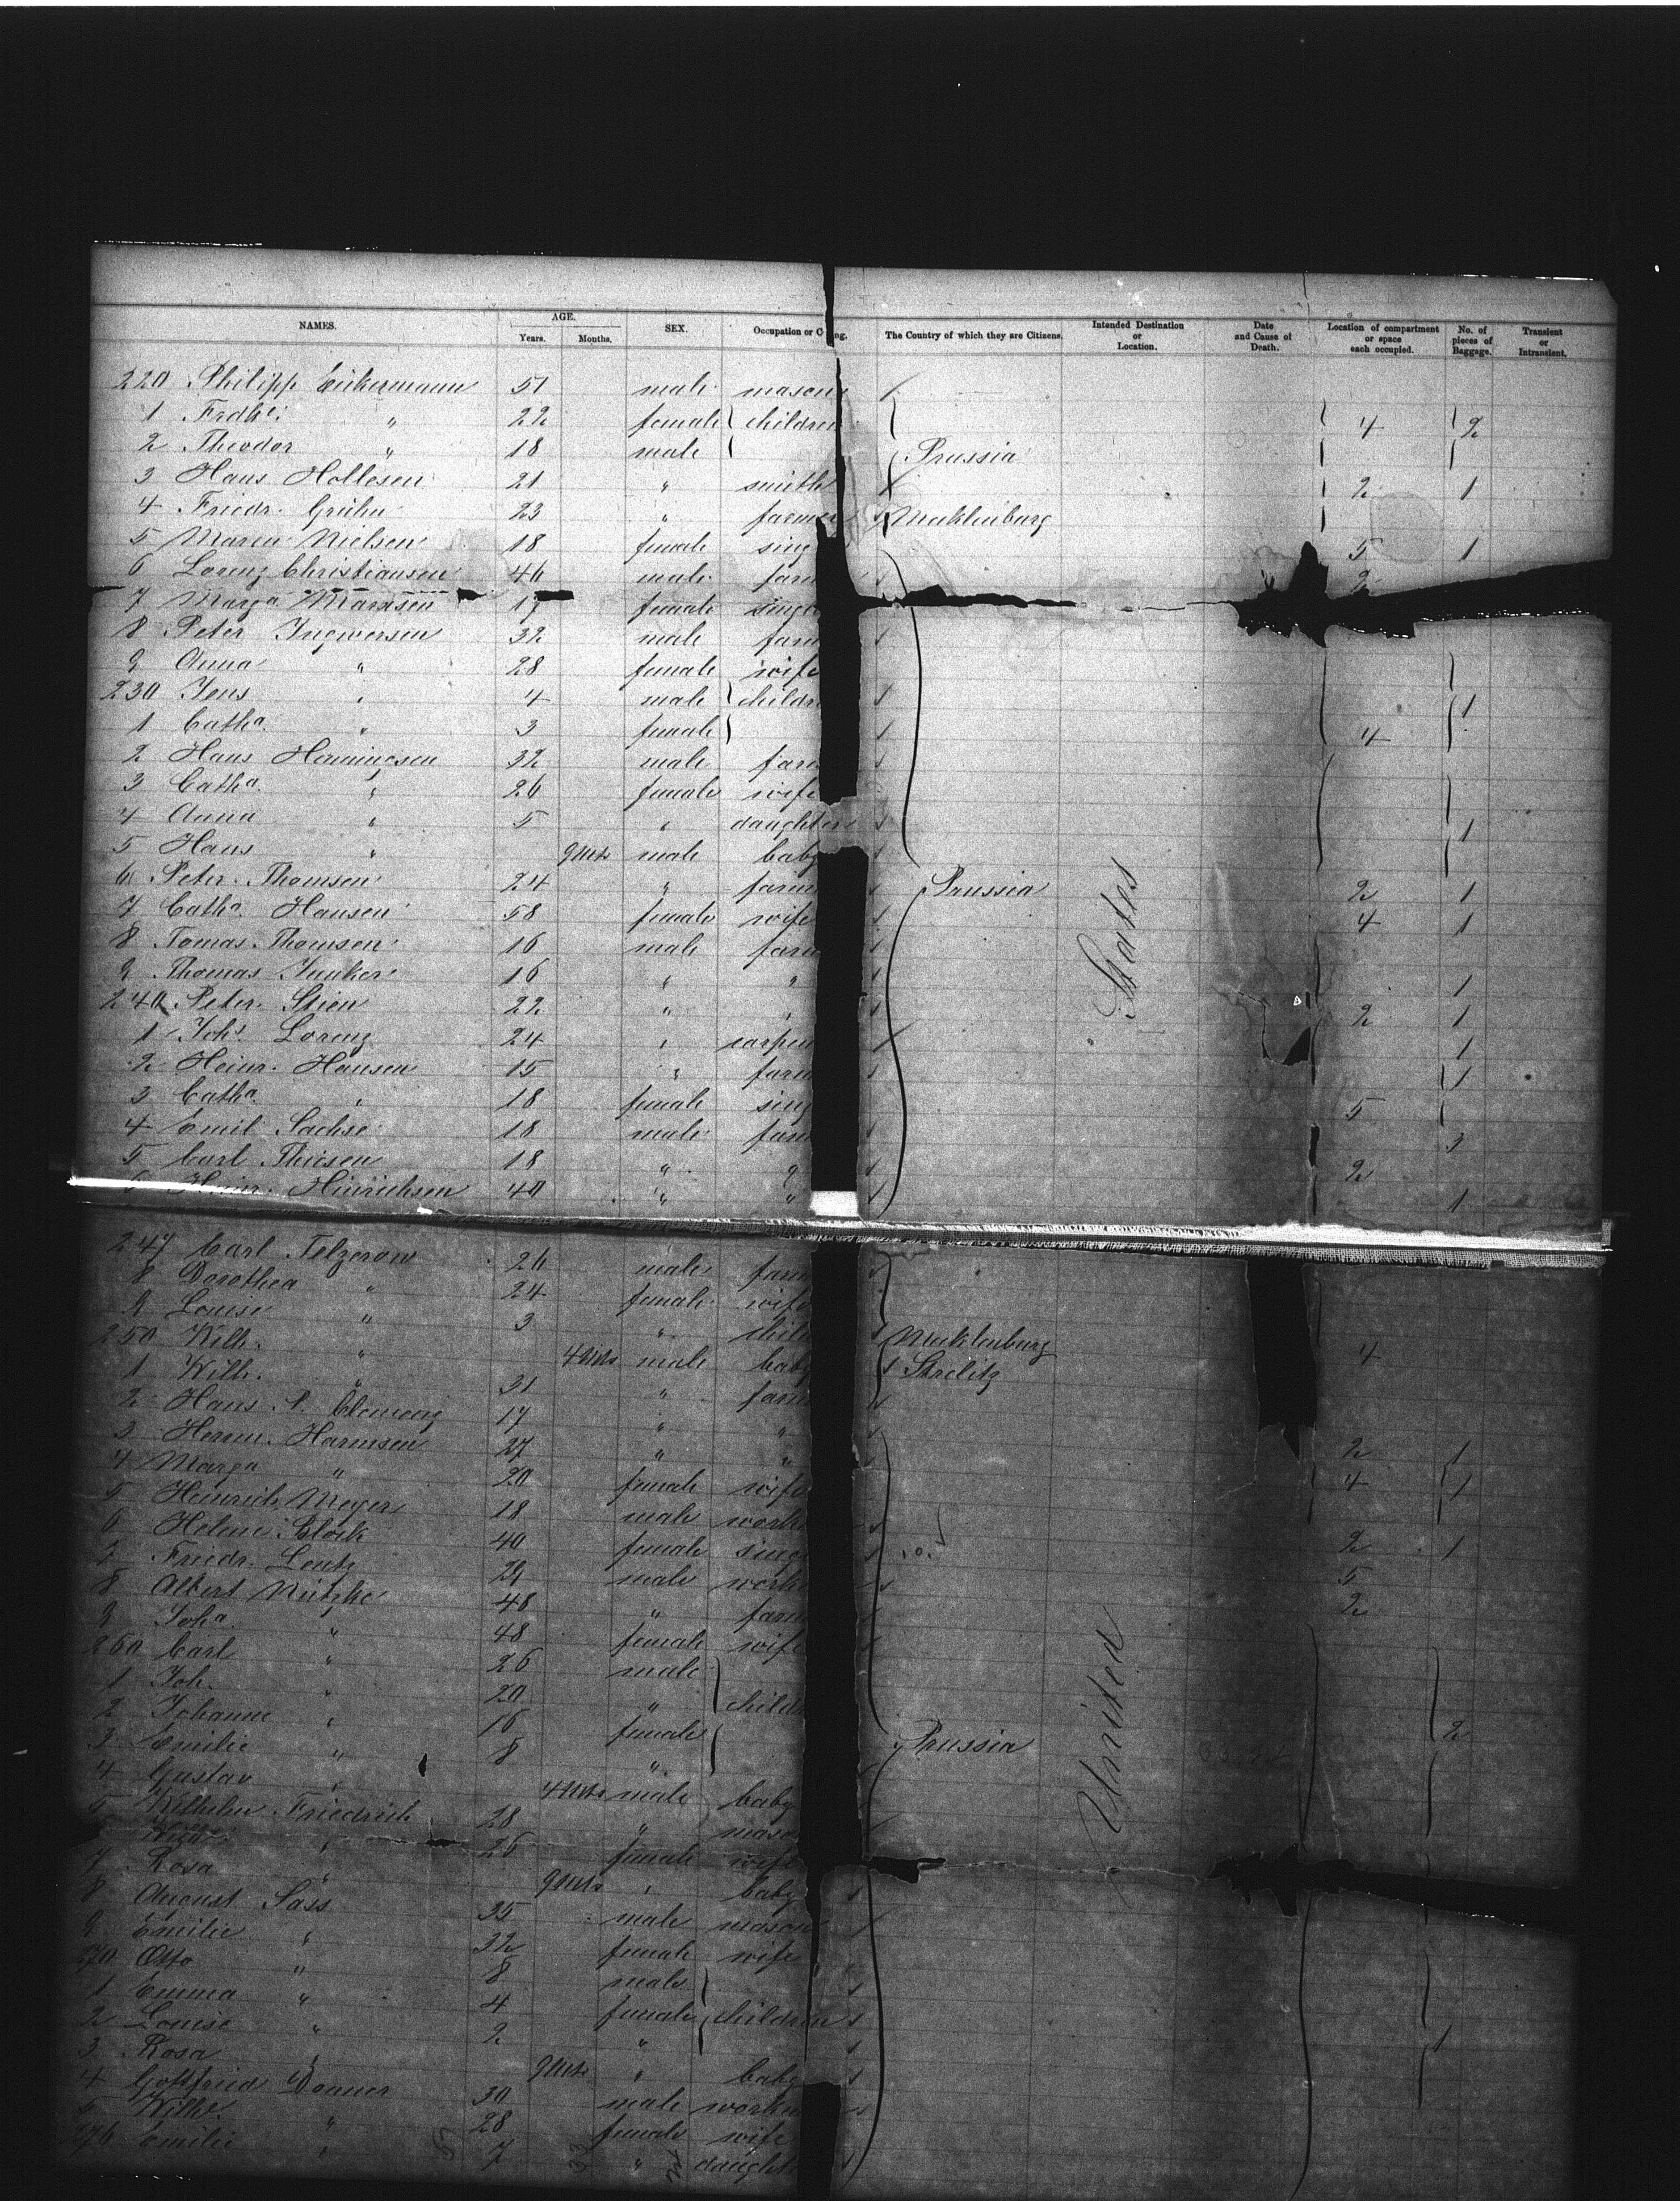 NAMES. AGE. Years. Months. SEX. Occupation or C ng. The Country of which they are Citizens. Intended Destination or Location. Date and Cause of Death. Location of compartment or space each occupied. No. of pieces of Baggage. Transient or Intransient.
220 Philipp Eickermann 51 male mason
1 Frdke " 22 female children 4 2
2 Theodor " 18 male Prussia
3 Hans Hollesen 21 " smith 2 1
4 Friedr. Grühn 23 " farmer Mecklenburg
5 Maren Nielsen 18 female sing 5 1
6 Lorenz Christiansen 46 male farm 2
7 Marga Mamsen 17 female single
8 Peter Ingwersen 32 male farm
9 Anna " 28 female wife
230 Jens " 4 male childr 1
1 Catha " 3 female 4
2 Hans Henningsen 32 male farm
3 Catha " 26 female wife
4 Anna " 5 " daughter 1
5 Hans " 9 Mts male baby
6 Peter Thomsen 24 " farm Prussia 2 1
7 Catha Hansen 58 female wife 4 1
8 Tomas Thomsen 16 male farm
9 Thomas Junker 16 " " 1
240 Peter Stien 22 " " 2 1
1 Johs. Lorenz 24 " carpen 1
2 Heinr. Hansen 15 " farm 1
3 Catha " 18 female sing 5
4 Emil Sachse 18 male farm 3
5 Carl Thiesen 18 " " 2
6 Heinr. Hinrichsen 40 " " 1
States
247 Carl Telzerow 26 male farm
8 Dorothea " 24 female wife
9 Louise " 3 " chil
250 Wilh. " 4 Mts male baby Mecklenburg 4
1 Wilh. " 31 " farm Strelitz
2 Hans P. Clemenz 17 " "
3 Herm. Harmsen 27 " " 2 1
4 Marga " 20 female wife 4 1
5 Heinrich Meyer 18 male work
6 Helene Block 40 female sing 2 1
7 Friedr. Lentz male work 5
8 Albert Nützke 48 " farm 2
9 Joha " 48 female wife
260 Carl " 26 male
1 Joh. " 20 " childr
2 Johanne " 16 female 2
3 Emilie " 8 " Prussia
4 Gustav " 4 Mts male baby
5 Wilhelm Friedrich 28 " mason
" 26 female wife
7 Rosa " 9 Mts " baby
8 August Sass 35 male mason
9 Emilie " 32 female wife
270 Otto " 8 male
1 Emma " 4 female children
2 Louise " 2 " 1
3 Rosa " 9 Mts " baby
4 Gottfried Donner 30 male workm
5 Wilhe. " 28 female wife
276 Emilie " 7 " daught
United